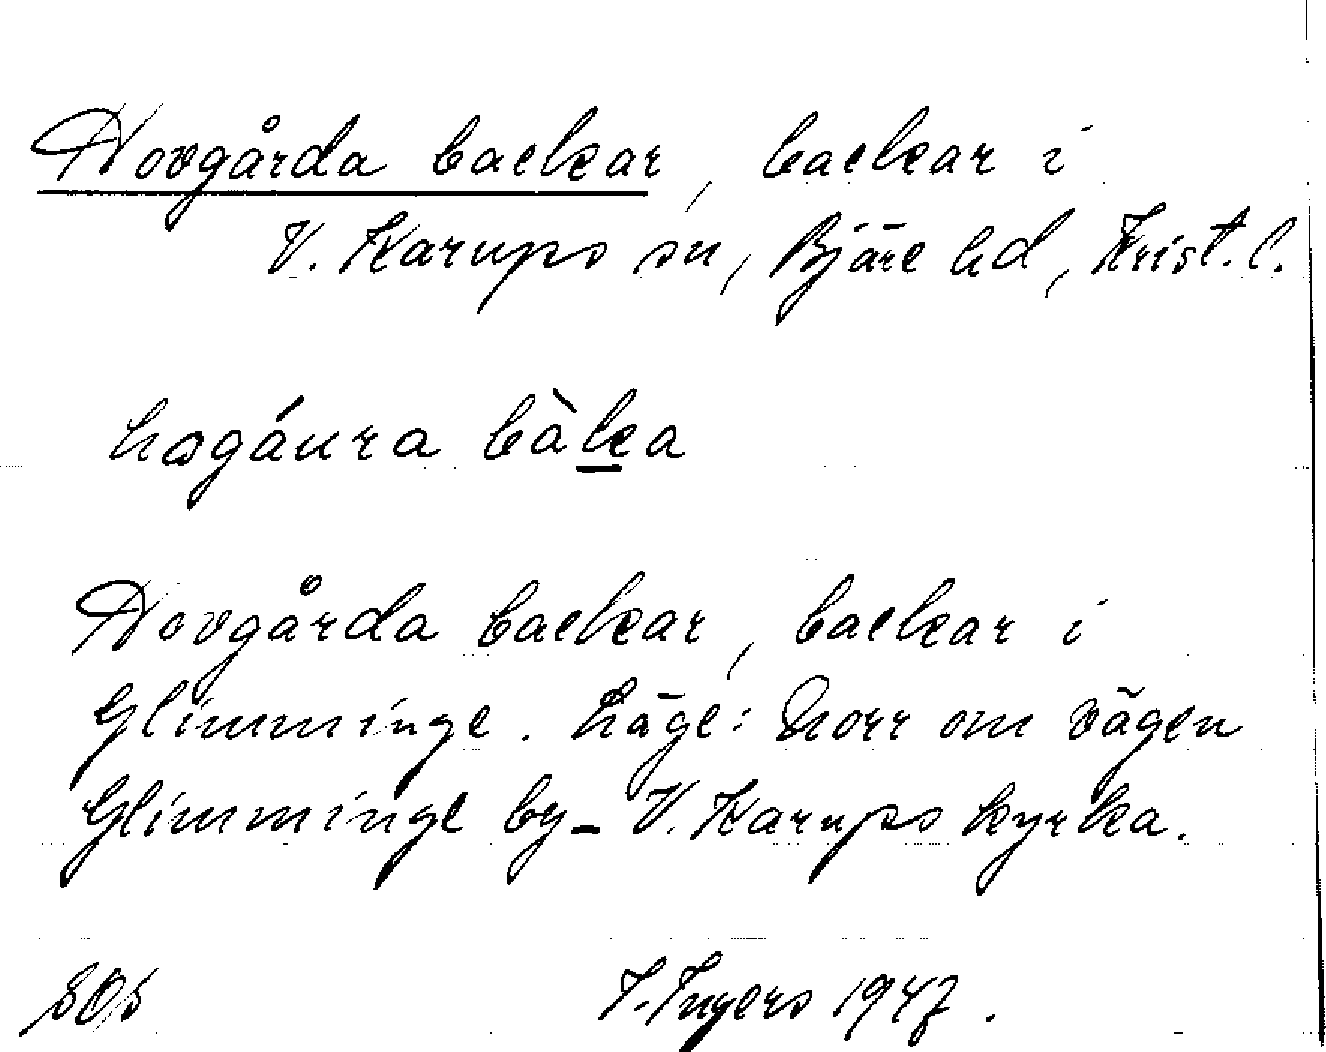 Hovgårda backar, backar i
V. Karups sn, Bjäre hd, Krist. l.
hogáura bàka
Hovgårda backar, backar i
Glimminge. Läge: Norr om vägen
Glimminge by - V. Karups kyrka.
SOS I. Ingers 1947.